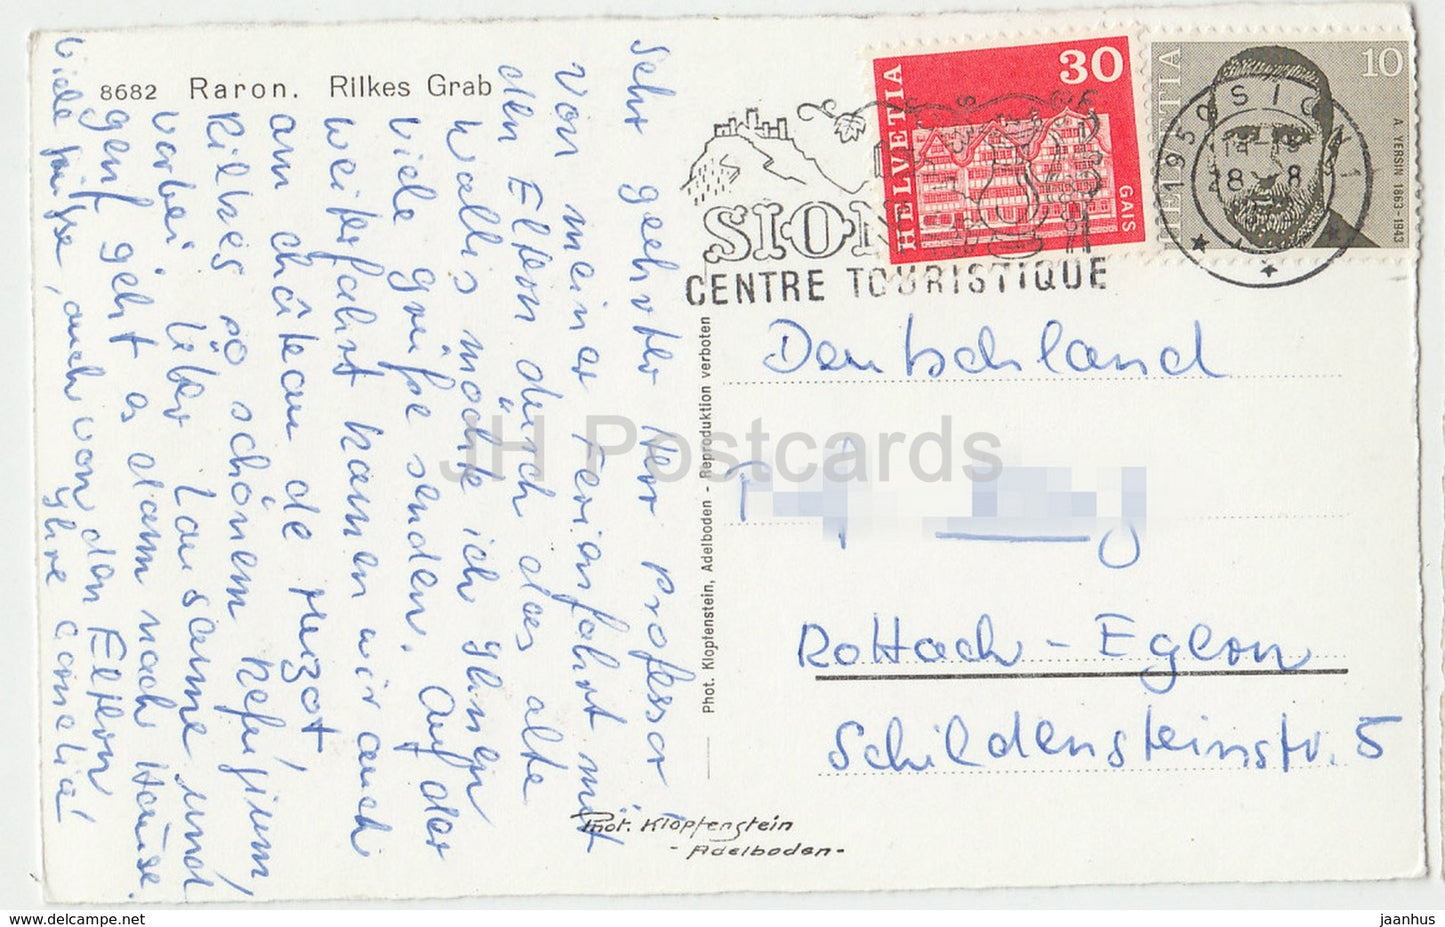 8682 Raron. Rilkes Grab
Sehr geehrter Herr Professor!
Von meiner Ferienfahrt mit
den Eltern durch das alte
Wallis möchte ich Ihnen
viele Grüße senden. Auf der
Weiterfahrt kamen wir auch
am château de Muzot
Rilkes so schönem Refugium,
vorbei. Über Lausanne und
Genf geht es dann nach Hause.
Viele Grüsse, auch von den Eltern
Ihre Cornelia!
HELVETIA
30
GAIS
HELVETIA
10
A. YERSIN 1863-1943
1950 SION 1
28 8
SION
CENTRE TOURISTIQUE
Deutschland
Rottach-Egern
Schildensteinstr. 5
Phot. Klopfenstein, Adelboden - Reproduktion verboten
Phot. Klopfenstein
- Adelboden -
JH Postcards
jaanhus